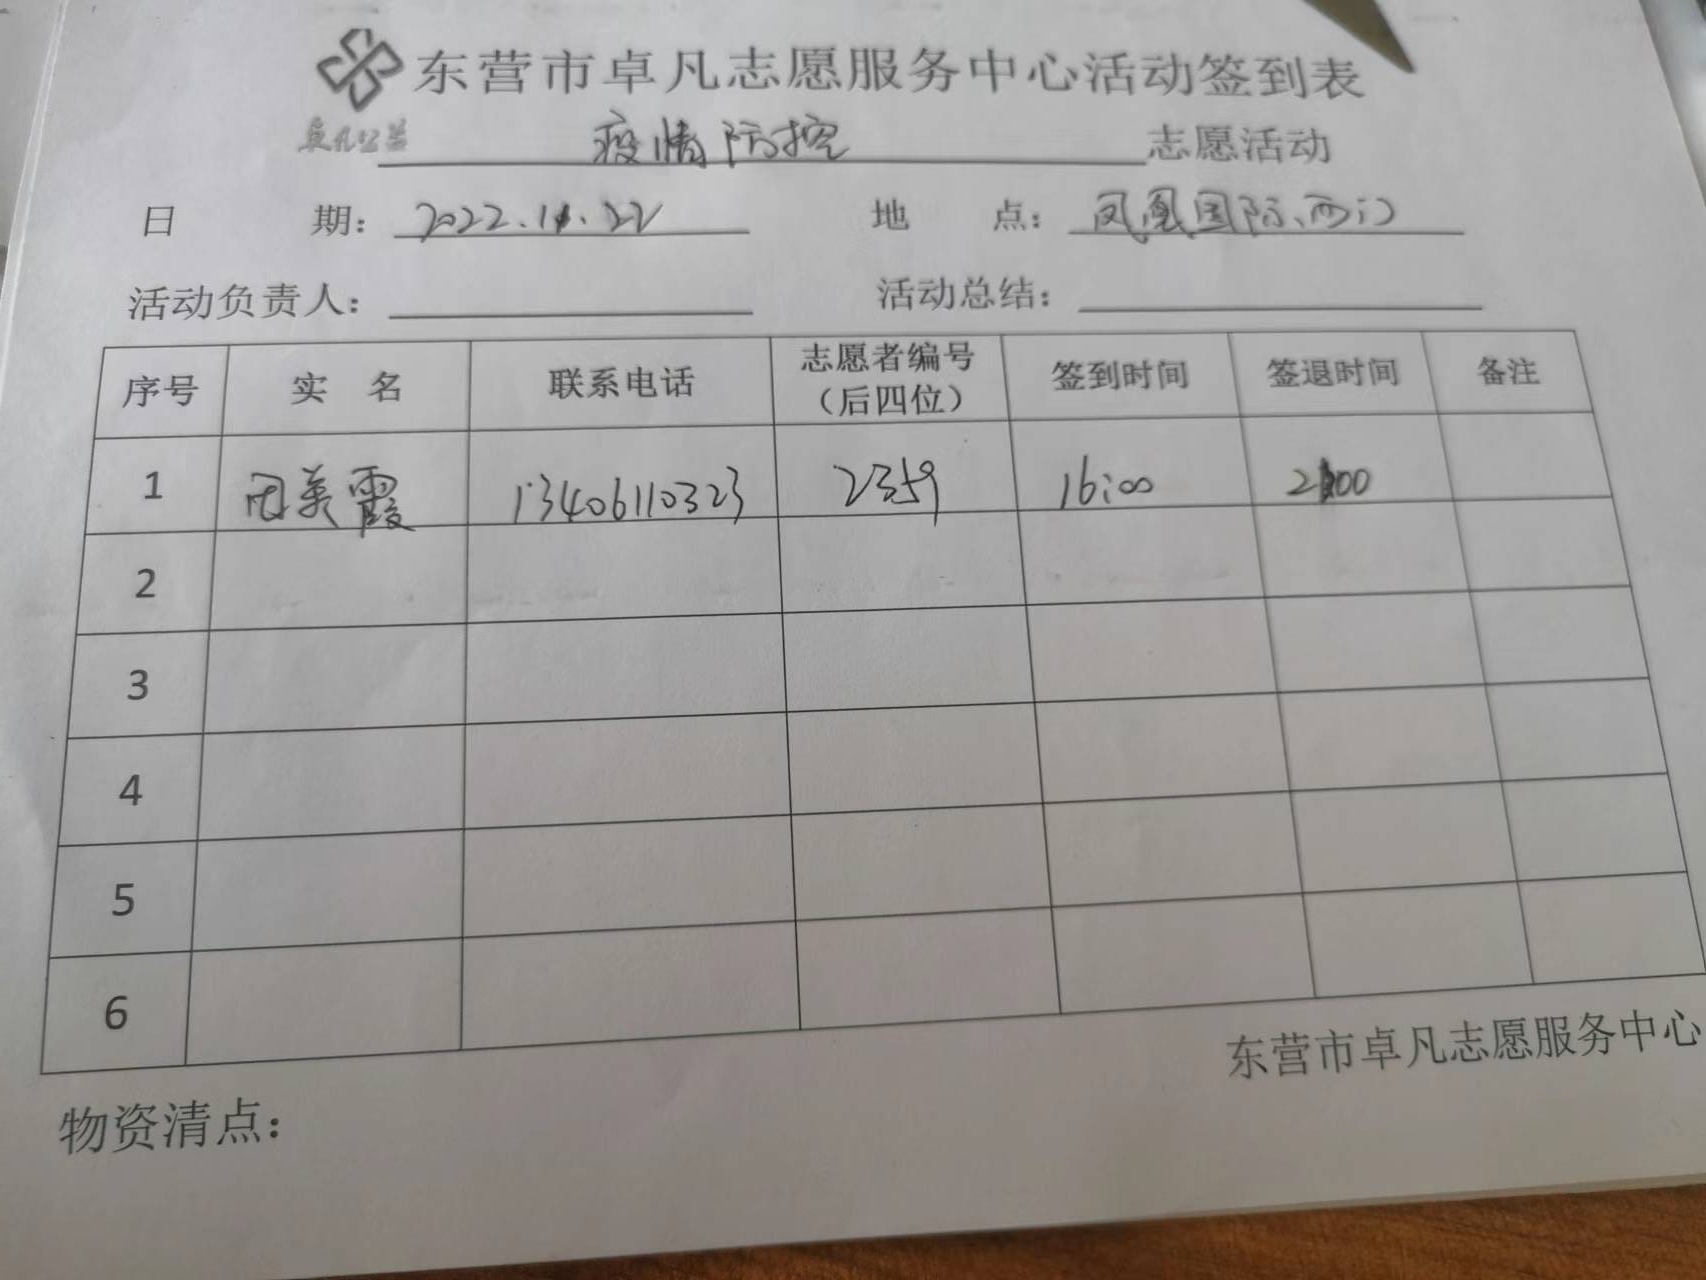 东营市卓凡志愿服务中心活动签到表
卓凡公益
疫情防控 志愿活动
日 期: 2022.11.22 地 点: 凤凰国际西门
活动负责人: 活动总结:
序号 实 名 联系电话 志愿者编号 (后四位) 签到时间 签退时间 备注
1 周美霞 13406110323 2359 16:00 2100
2
3
4
5
6
东营市卓凡志愿服务中心
物资清点: